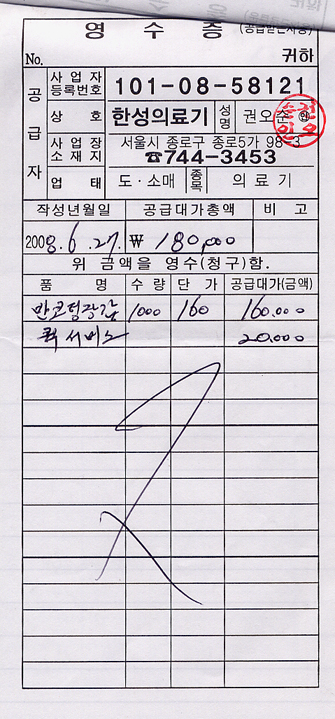 영 수 증 (공급받는자용)
No. 귀하
공급자
사업자등록번호 101-08-58121
상 호 한성의료기 성명 권오순 ㊞
사업장소재지 서울시 종로구 종로5가 98-3
☎744-3453
업 태 도·소매 종목 의 료 기
작성년월일 공급대가총액 비 고
2008. 6. 27. ₩ 180,000
위 금액을 영수(청구)함.
품 명 수 량 단 가 공급대가(금액)
반코팅장갑 1000 160 160.000
퀵서비스 20.000